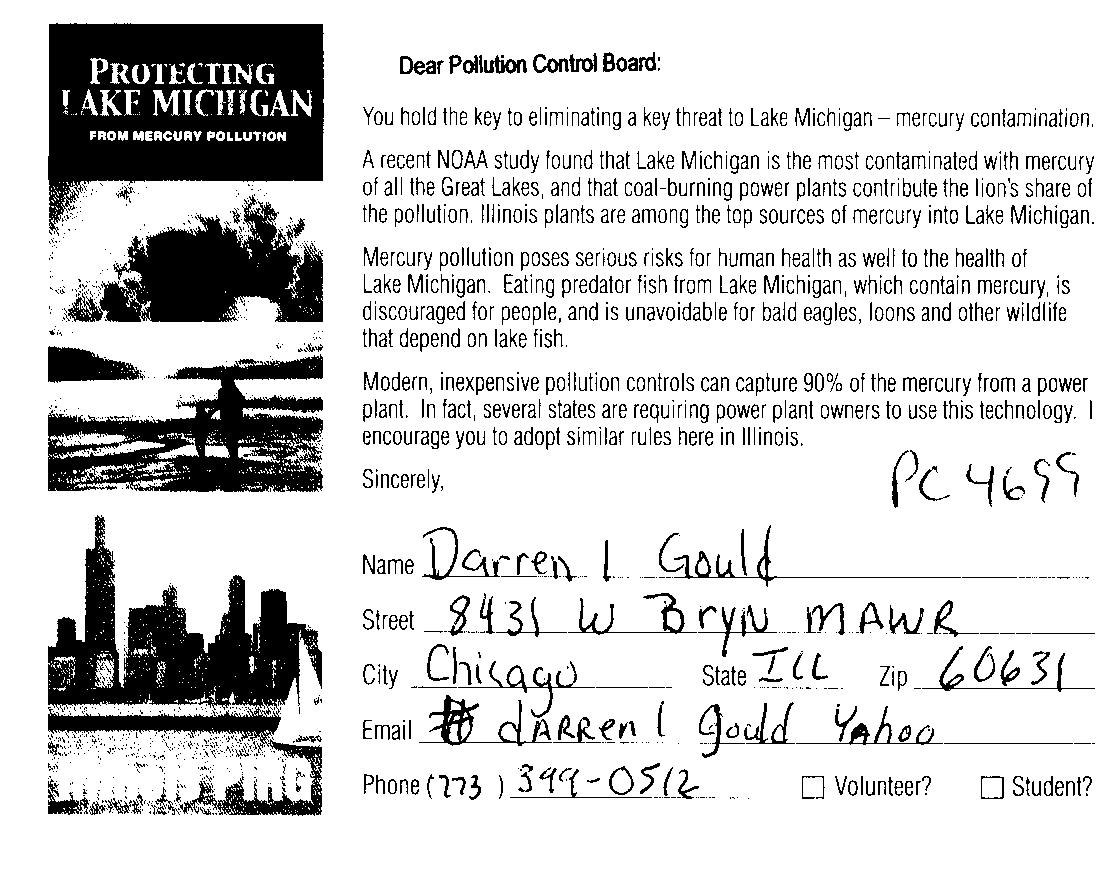 PROTECTING
LAKE MICHIGAN
FROM MERCURY POLLUTION
ILLINOIS PIRG
Dear Pollution Control Board:
You hold the key to eliminating a key threat to Lake Michigan – mercury contamination.
A recent NOAA study found that Lake Michigan is the most contaminated with mercury
of all the Great Lakes, and that coal-burning power plants contribute the lion's share of
the pollution. Illinois plants are among the top sources of mercury into Lake Michigan.
Mercury pollution poses serious risks for human health as well to the health of
Lake Michigan. Eating predator fish from Lake Michigan, which contain mercury, is
discouraged for people, and is unavoidable for bald eagles, loons and other wildlife
that depend on lake fish.
Modern, inexpensive pollution controls can capture 90% of the mercury from a power
plant. In fact, several states are requiring power plant owners to use this technology. I
encourage you to adopt similar rules here in Illinois.
Sincerely,
PC 4699
Name Darren l Gould
Street 8431 W Bryn MAWR
City Chicago State ILL Zip 60631
Email dARRen l gould Yahoo
Phone (773) 399-0512 Volunteer? Student?